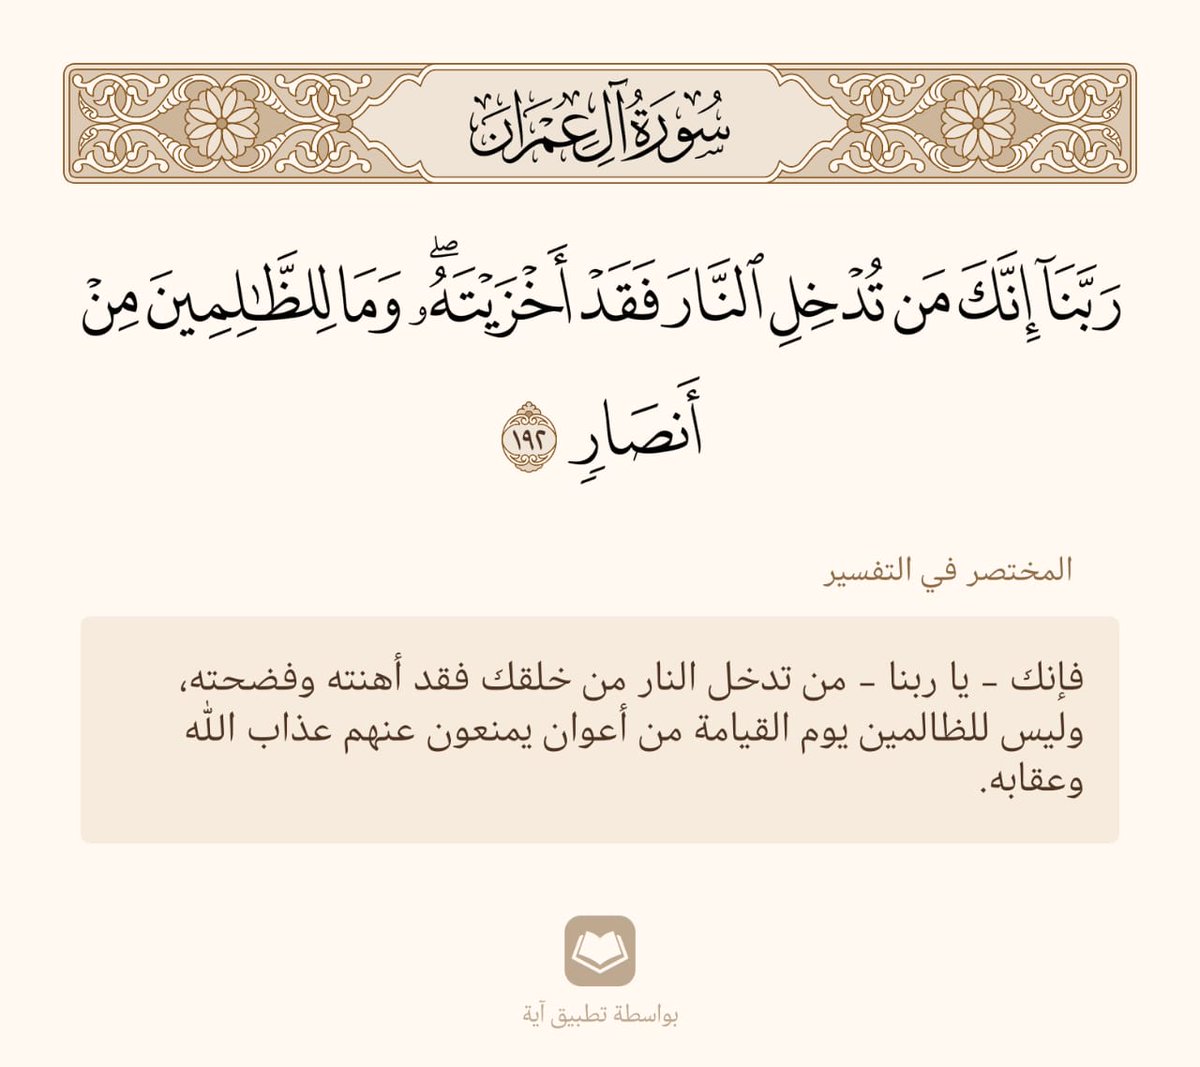 سُورَةُ آلِ عِمْرَان
رَبَّنَآ إِنَّكَ مَن تُدْخِلِ ٱلنَّارَ فَقَدْ أَخْزَيْتَهُۥۖ وَمَا لِلظَّٰلِمِينَ مِنْ
أَنصَارٍ ١٩٢
المختصر في التفسير
فإنك - يا ربنا - من تدخل النار من خلقك فقد أهنته وفضحته،
وليس للظالمين يوم القيامة من أعوان يمنعون عنهم عذاب الله
وعقابه.
بواسطة تطبيق آية